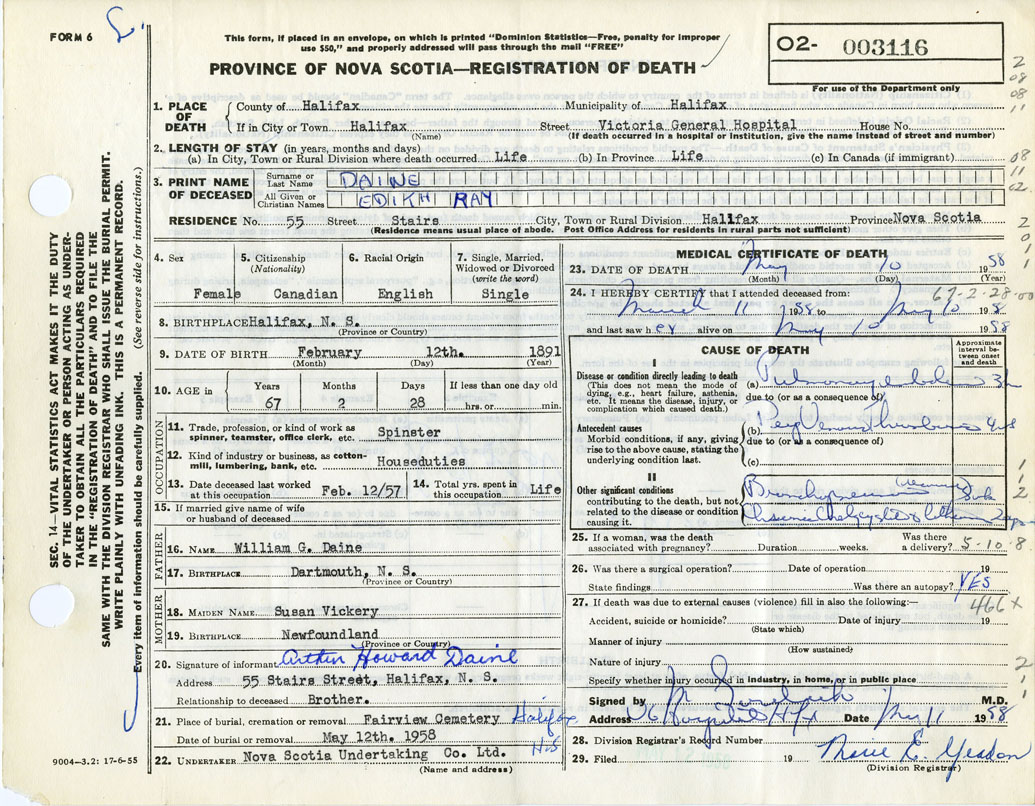 FORM 6
This form, if placed in an envelope, on which is printed "Dominion Statistics—Free, penalty for improper
use $50," and properly addressed will pass through the mail "FREE"
PROVINCE OF NOVA SCOTIA—REGISTRATION OF DEATH
02- 003116
For use of the Department only
1. PLACE OF DEATH
County of Halifax Municipality of Halifax
If in City or Town Halifax Street Victoria General Hospital House No.
(Name) (If death occurred in a hospital or institution, give the name instead of street and number)
2. LENGTH OF STAY (in years, months and days)
(a) In City, Town or Rural Division where death occurred Life (b) In Province Life (c) In Canada (if immigrant)
3. PRINT NAME OF DECEASED
Surname or Last Name DAINE
All Given or Christian Names EDIKH RAY
RESIDENCE No. 55 Street Stairs City, Town or Rural Division Halifax Province Nova Scotia
(Residence means usual place of abode. Post Office Address for residents in rural parts not sufficient)
4. Sex
Female
5. Citizenship
(Nationality)
Canadian
6. Racial Origin
English
7. Single, Married,
Widowed or Divorced
(write the word)
Single
8. BIRTHPLACE Halifax, N. S.
(Province or Country)
9. DATE OF BIRTH February 12th. 1891
(Month) (Day) (Year)
10. AGE in
Years Months Days If less than one day old
67 2 28 hrs. or min.
OCCUPATION
11. Trade, profession, or kind of work as
spinner, teamster, office clerk, etc. Spinster
12. Kind of industry or business, as cotton-
mill, lumbering, bank, etc. Houseduties
13. Date deceased last worked
at this occupation Feb. 12/57
14. Total yrs. spent in
this occupation Life
15. If married give name of wife
or husband of deceased
FATHER
16. NAME William G. Daine
17. BIRTHPLACE Dartmouth, N. S.
(Province or Country)
MOTHER
18. MAIDEN NAME Susan Vickery
19. BIRTHPLACE Newfoundland
(Province or Country)
20. Signature of informant Arthur Howard Daine
Address 55 Stairs Street, Halifax, N. S.
Relationship to deceased Brother.
21. Place of burial, cremation or removal Fairview Cemetery Halifax
Date of burial or removal May 12th. 1958 N.S
22. UNDERTAKER Nova Scotia Undertaking Co. Ltd.
(Name and address)
9004—3.2: 17-6-55
MEDICAL CERTIFICATE OF DEATH
23. DATE OF DEATH May 10 1958
(Month) (Day) (Year)
24. I HEREBY CERTIFY that I attended deceased from: 67-2-28-00
March 11 1958 to May 10 1958
and last saw her alive on May 10 1958
CAUSE OF DEATH
Approximate
interval be-
tween onset
and death
I
Disease or condition directly leading to death
(This does not mean the mode of
dying, e.g., heart failure, asthenia,
etc. It means the disease, injury, or
complication which caused death.)
(a) Pulmonary embolism
due to (or as a consequence of)
Antecedent causes
Morbid conditions, if any, giving
rise to the above cause, stating the
underlying condition last.
(b) Venous thrombosis
due to (or as a consequence of)
(c)
II
Other significant conditions
contributing to the death, but not
related to the disease or condition
causing it.
25. If a woman, was the death
associated with pregnancy? Duration weeks. Was there
a delivery? 5-10-8
26. Was there a surgical operation? Date of operation 19
State findings Was there an autopsy? YES
27. If death was due to external causes (violence) fill in also the following:— 466x
Accident, suicide or homicide? Date of injury 19
(State which)
Manner of injury
(How sustained)
Nature of injury
Specify whether injury occurred in industry, in home, or in public place
Signed by M.D.
Address VG Hospital Hfx Date May 11 1958
28. Division Registrar's Record Number
29. Filed 19 E. Yeadon
(Division Registrar)
SEC. 14—VITAL STATISTICS ACT MAKES IT THE DUTY
OF THE UNDERTAKER OR PERSON ACTING AS UNDER-
TAKER TO OBTAIN ALL THE PARTICULARS REQUIRED
IN THE "REGISTRATION OF DEATH" AND TO FILE THE
SAME WITH THE DIVISION REGISTRAR WHO SHALL ISSUE THE BURIAL PERMIT.
WRITE PLAINLY WITH UNFADING INK. THIS IS A PERMANENT RECORD.
Every item of information should be carefully supplied. (See reverse side for instructions.)
2
08
08
11
08
11
02
2
0
1
1
1
2
2
1
1